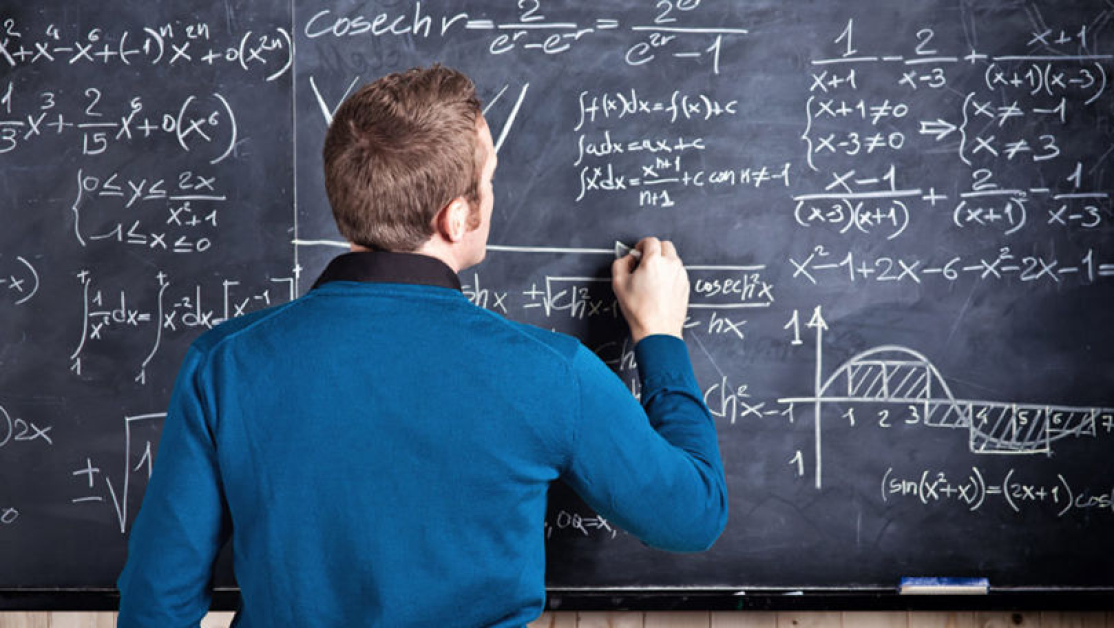 x²+x⁴-x⁶+(-1)ⁿx²ⁿ+o(x²ⁿ)
1/3 x³+2/15 x⁶+o(x⁶)
{0≤y≤ 2x/x²+1
-1≤x≤0
-x)
∫ 1/x² dx=∫x⁻²dx=[x⁻¹
)2x
±√1
cosech r= 2/eʳ-e⁻ʳ =
e²ʳ-1
∫f(x)dx=f(x)+c
∫adx=ax+c
∫xˣdx= xⁿ⁺¹/n+1 +c con n≠-1
shx ±√ch²x-1
cosech²x
hx
ch²x-1
, OQ=x,
1/x+1 - 2/x-3 + x+1/(x+1)(x-3)
{x+1≠0 ⇒ {x≠-1
x-3≠0 x≠3
x-1/(x-3)(x+1) + 2/(x+1) - 1/x-3
x²-1+2x-6-x²-2x-1=
1
1 2 3 4 5 6 7
1
(sin(x²+x))=(2x+1)cos(